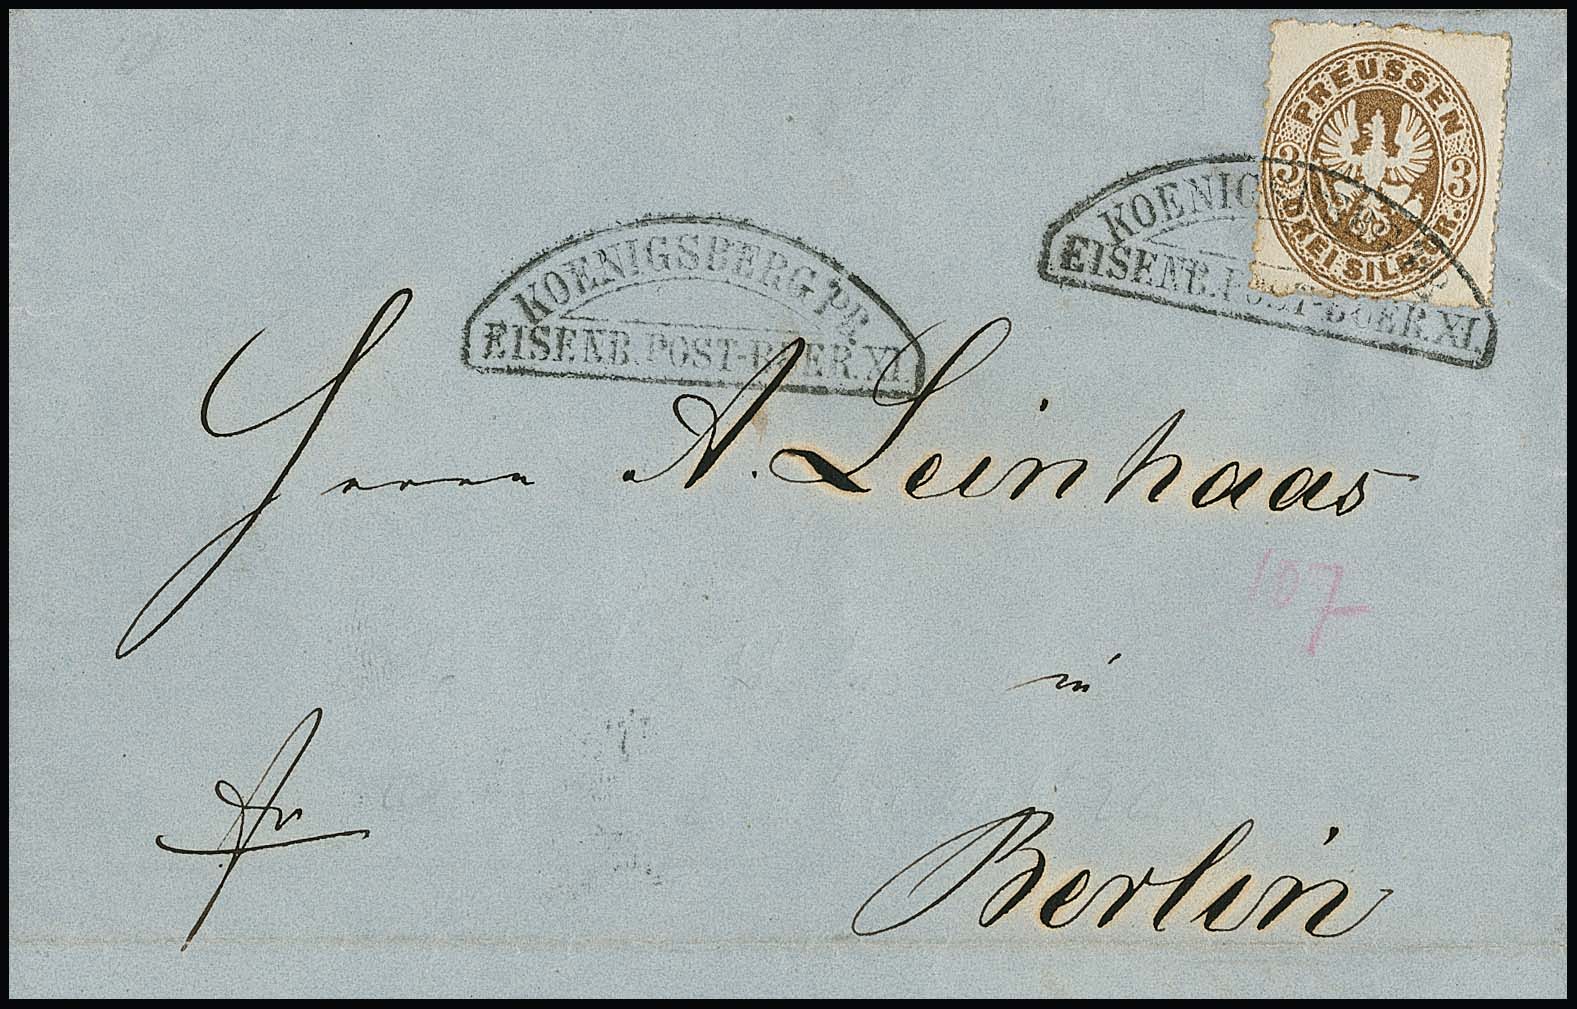 PREUSSEN
3 3
DREI SILB.GR.
KOENIGSBERG PR.
EISENB. POST-BUER. XI.
KOENIGSBERG PR.
EISENB. POST-BUER. XI.
Herrn A. Leinhaas
107
in
Berlin